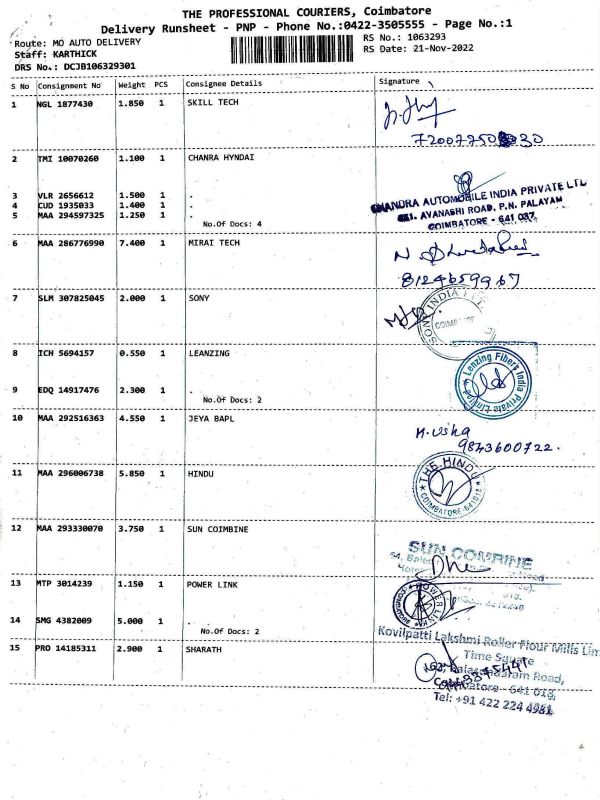 THE PROFESSIONAL COURIERS, Coimbatore
Delivery Runsheet - PNP - Phone No.:0422-3505555 - Page No.:1
Route: MO AUTO DELIVERY
RS No.: 1063293
Staff: KARTHICK
RS Date: 21-Nov-2022
DRS No.: DCJB106329301
S No Consignment No Weight PCS Consignee Details Signature
1 NGL 1877430 1.850 1 SKILL TECH
2 TMI 10070260 1.100 1 CHANRA HYNDAI
3 VLR 2656612 1.500 1 .
4 CUD 1935033 1.400 1 .
5 MAA 294597325 1.250 1 .
No.Of Docs: 4
CHANDRA AUTOMOBILE INDIA PRIVATE LTD
AVANASHI ROAD, P.N. PALAYAM
COIMBATORE - 641 037
6 MAA 286776990 7.400 1 MIRAI TECH
8124659967
7 SLM 307825045 2.000 1 SONY
SONY INDIA
8 ICH 5694157 0.550 1 LEANZING
Lenzing Fibers India Private Limited
9 EDQ 14917476 2.300 1 .
No.Of Docs: 2
10 MAA 292516363 4.550 1 JEYA BAPL
M. Usha
9843600722.
11 MAA 296006738 5.850 1 HINDU
THE HINDU
COIMBATORE-641018
12 MAA 293330070 3.750 1 SUN COIMBINE
SUN COMBINE
13 MTP 3014239 1.150 1 POWER LINK
POWER LINK
14 SMG 4382009 5.000 1 .
No.Of Docs: 2
Kovilpatti Lakshmi Roller Flour Mills Lim
15 PRO 14185311 2.900 1 SHARATH
Time Square
Road,
Coimbatore - 641 018,
Tel: +91 422 224 4981